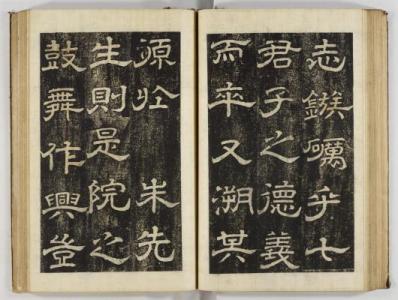 志鏃礪乎七
君子之德義
而卒又溯其
源於 朱先
生則是院之
鼓舞作興豈